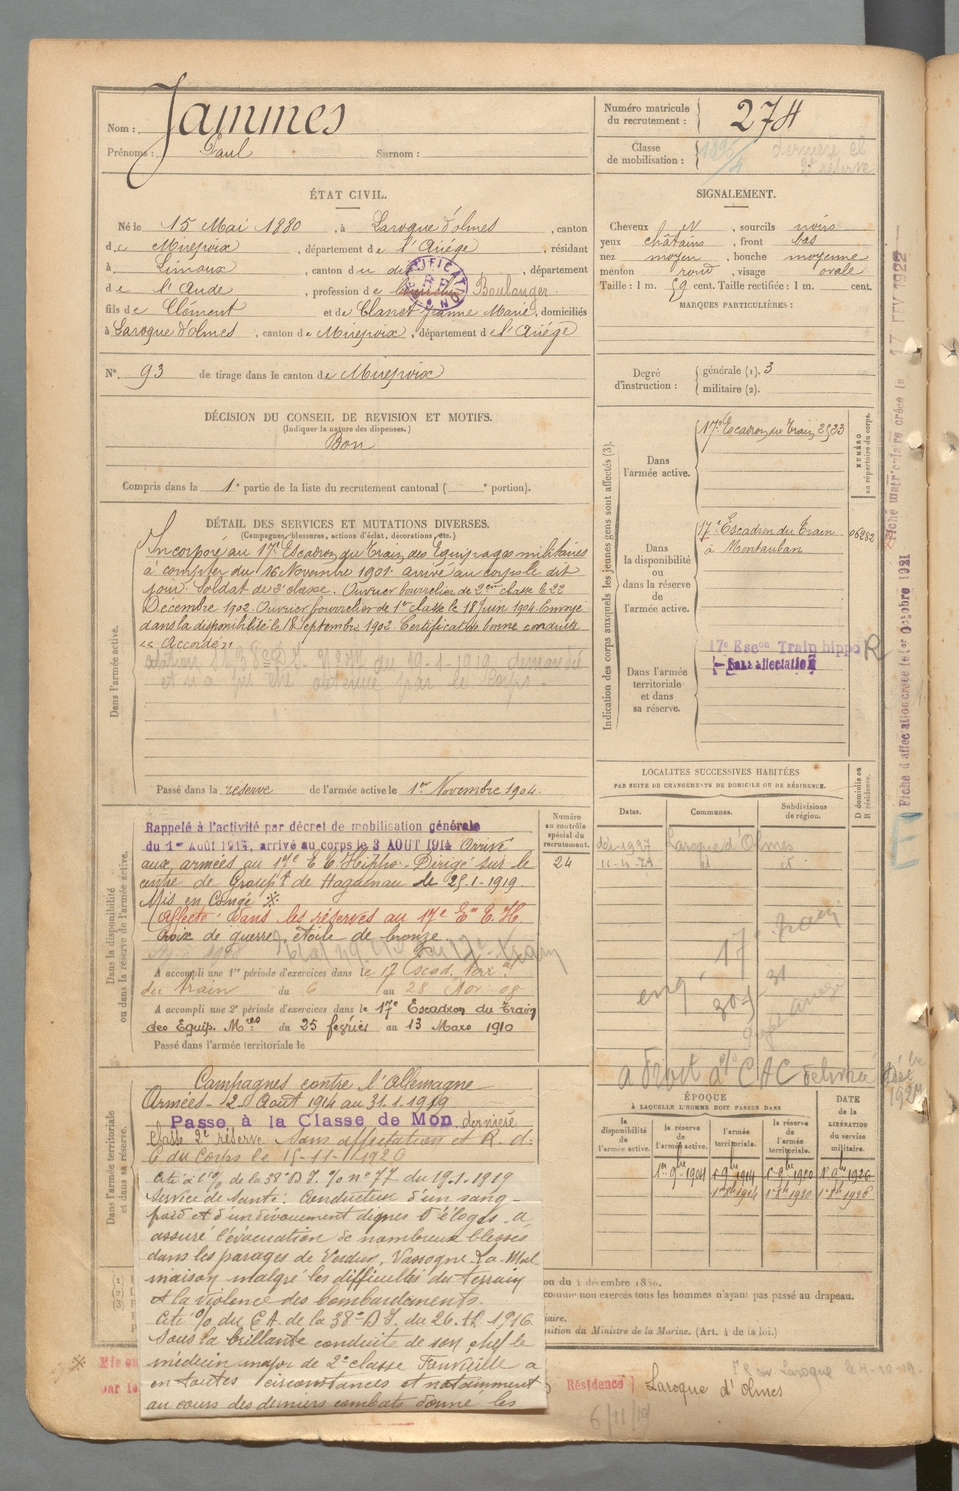 Nom : Jammes
Prénoms : Paul Surnom :
Numéro matricule
du recrutement : 274
Classe
de mobilisation :
dernière et
2e réserve
ÉTAT CIVIL.
Né le 15 Mai 1880, à Laroque d'olmes, canton
de Mirepoix, département de l'Ariége, résidant
à Limoux, canton du dit, département
de l'Aude, profession de Boulanger
fils de Clément et de Clanet Jeanne Marie, domiciliés
à Laroque d'olmes, canton de Mirepoix, département de l'Ariége
N° 93 de tirage dans le canton de Mirepoix
DÉCISION DU CONSEIL DE REVISION ET MOTIFS.
(Indiquer la nature des dispenses.)
Bon
Compris dans la 1e partie de la liste du recrutement cantonal ( e portion).
SIGNALEMENT.
Cheveux N, sourcils noirs
yeux châtains, front bas
nez moyen, bouche moyenne
menton rond, visage ovale
Taille : 1 m. 59 cent. Taille rectifiée : 1 m. cent.
MARQUES PARTICULIÈRES :
Degré
d'instruction :
générale (1). 3
militaire (2).
DÉTAIL DES SERVICES ET MUTATIONS DIVERSES.
(Campagnes, blessures, actions d'éclat, décorations, etc.)
Dans l'armée active.
Incorporé au 17e Escadron du Train des Equipages militaires
à compter du 16 Novembre 1901 arrivé au corps le dit
jour. Soldat de 2e classe. Ouvrier bourrelier de 2eme classe le 22
Décembre 1902. Ouvrier bourrelier de 1re classe le 18 Juin 1904. Envoyé
dans la disponibilité le 18 septembre 1902 Certificat de bonne conduite
"Accordé"
du 19-1-1919 demandé
et n'a pu être obtenue par le Corps.
Passé dans la réserve de l'armée active le 1er Novembre 1904.
Indication des corps auxquels les jeunes gens sont affectés (3).
NUMÉRO
au répertoire du corps.
Dans
l'armée active.
17e Escadron du Train 2523
Dans
la disponibilité
ou
dans la réserve
de
l'armée active.
17e Escadron du Train
à Montauban
06262
Dans l'armée
territoriale
et dans
sa réserve.
17e Escon Train hippo R
Sans affectation
Fiche matriculaire créée le 17 FEV 1922
Fiche d'affectation créée le 1er Octobre 1921
Dans la disponibilité
ou dans la réserve de l'armée active.
Numéro
au contrôle
spécial du
recrutement.
24
Rappelé à l'activité par décret de mobilisation générale
du 1er Août 1914, arrivé au corps le 3 AOUT 1914 Arrivé
aux armées au 17e E. T. Hippo. Dirigé sur le
centre de Groupt de Haguenau le 25-1-1919.
Mis en Congé ※
Affecté dans les réserves au 17e Em T. H.
Croix de guerre, étoile de bronze
A accompli une 1re période d'exercices dans le 17 Escad. Terr.al
du Train du 6 au 28 Nov 08
A accompli une 2e période d'exercices dans le 17e Escadron du Train
des Equip. Mres du 25 février au 13 Mars 1910
Passé dans l'armée territoriale le
LOCALITÉS SUCCESSIVES HABITÉES
PAR SUITE DE CHANGEMENTS DE DOMICILE OU DE RÉSIDENCE.
Dates. Communes. Subdivisions
de région.
D domicile ou
R résidence.
Laroque d'Olmes
id
17e Train
a droit à C/ CAC
Dans l'armée territoriale
et dans sa réserve.
Campagnes contre l'Allemagne
Armées - 12 Aout 1914 au 31.1.1919
Passe à la Classe de Mon dernière
classe 2e réserve Sans affectation et R. d.
C du Corps le 15-11-1926
Cité à l'% de la 38e D. I. % n° 77 du 19.1.1919
Service de Santé : Conducteur d'un sang-
froid et d'un dévouement dignes d'éloges. a
assuré l'évacuation de nombreux blessés
dans les parages de Verdun, Vassogne. La-Mal
maison malgré les difficultés du terrain
et la violence des bombardements.
Cité % du C A. de la 38e D I. du 26.12.1916
Sous la brillante conduite de son chef le
médecin major de 2e classe a
en toutes circonstances et notamment
au cours des derniers combats donné les
ÉPOQUE
À LAQUELLE L'HOMME DOIT PASSER DANS
la
disponibilité
de
l'armée active.
la réserve
de
l'armée active.
l'armée
territoriale.
la réserve
de
l'armée
territoriale.
DATE
de la
LIBÉRATION
du service
militaire.
1er 9bre 1904 1er 9bre 1914 1er 9bre 1920 1er 9bre 1926
on du 4 décembre 1889.
comme non exercés tous les hommes n'ayant pas passé au drapeau.
aire.
sition du Ministre de la Marine. (Art. 4 de la loi.)
※ Mis en
par le
Résidence Laroque d'Olmes
6/11/19
Laroque le 4-10-19.